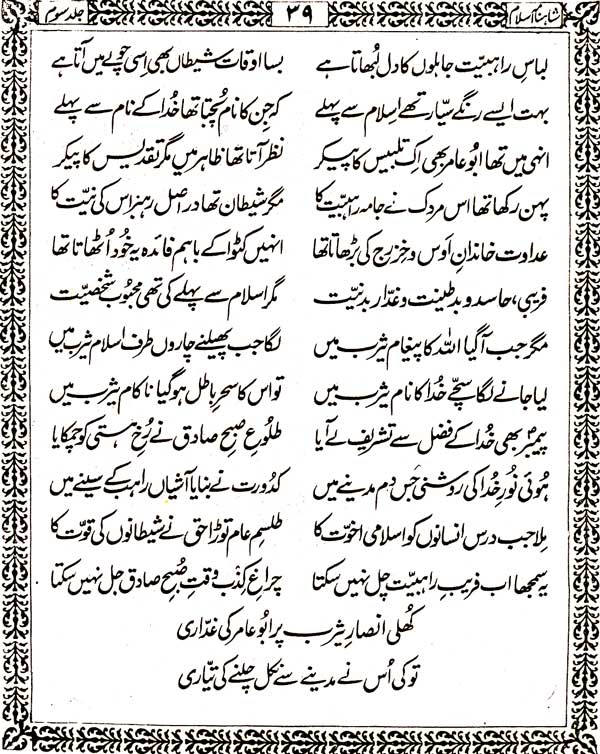 شاہنامہ اسلام ۳۹ جلد سوم
لباسِ راہبیّت جاہلوں کا دل لُبھاتا ہے بسا اوقات شیطاں بھی اِسی چولے میں آتا ہے
بہت ایسے رنگے سیّار تھے اِسلام سے پہلے کہ جن کا نام جُپتا تھا خُدا کے نام سے پہلے
انہی میں تھا ابُو عامر بھی اِک تلبیس کا پیکر نظر آتا تھا ظاہر میں مگر تقدیس کا پیکر
پہن رکھا تھا اس مردک نے جامہ راہبیّت کا مگر شیطان تھا دراصل رہبر اس کی نیّت کا
عداوت خاندانِ اَوس و خزرج کی بڑھاتا تھا انہیں کٹوا کے باہم فائدہ یہ خُود اُٹھاتا تھا
فریبی، حاسد و بد طینت و غدّار بد نیّت مگر اسلام سے پہلے کی تھی محبُوب شخصیّت
مگر جب آ گیا اللہ کا پیغام یثرب میں لگا جب پھیلنے چاروں طرف اسلام یثرب میں
لیا جانے لگا سچّے خُدا کا نام یثرب میں تو اس کا سحرِ باطل ہو گیا ناکام یثرب میں
پیمبرؐ بھی خُدا کے فضل سے تشریف لے آیا طلُوعِ صبحِ صادق نے رُخِ ہستی کو چمکایا
ہُوئی نُورِ خُدا کی روشنی جس دم مدینے میں کدُورت نے بنایا آشیاں راہب کے سینے میں
مِلا جب درس انسانوں کو اسلامی اخوّت کا طلسمِ عام توڑا حق نے شیطانوں کی قوّت کا
یہ سمجھا اب فریبِ راہبیّت چل نہیں سکتا چراغِ کذب وقتِ صُبحِ صادق جل نہیں سکتا
کھُلی انصارِ یثرب پر ابُو عامر کی غدّاری
تو کی اُس نے مدینے سے نکل چلنے کی تیّاری